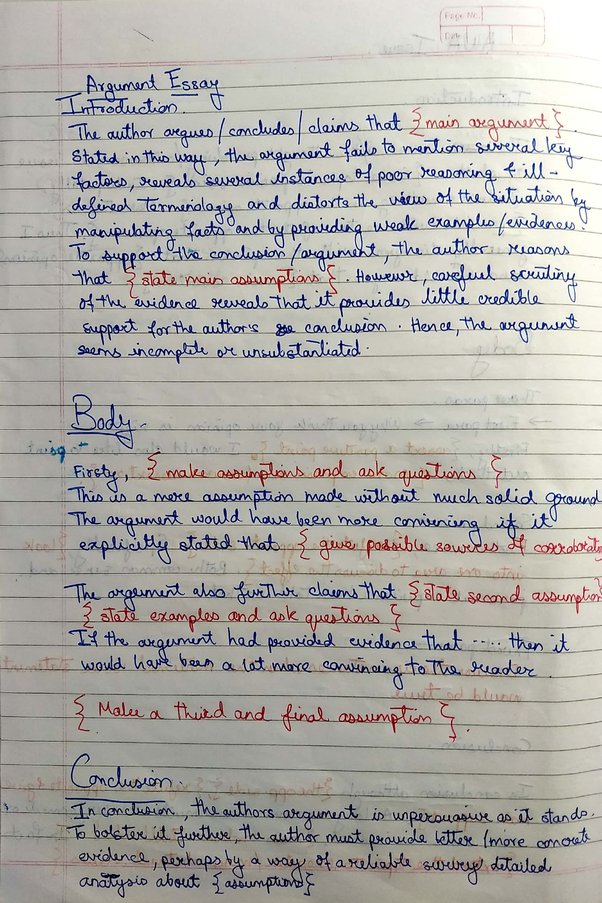 Page No.
Date
Argument Essay
Introduction.
The author argues/concludes/claims that {main argument}.
Stated in this way, the argument fails to mention several key
factors, reveals several instances of poor reasoning & ill-
defined termenology and distorts the view of the situation by
manipulating facts and by providing weak examples/evidences.
To support the conclusion/argument, the author reasons
that {state main assumptions}. However, careful scrutiny
of the evidence reveals that it provides little credible
support for the author's conclusion. Hence, the argument
seems incomplete or unsubstantiated.
Body.
Firsty, { make assumptions and ask questions }
This is a mere assumption made without much solid ground
The argument would have been more convincing if it
explicitly stated that { give possible sources of corroborati
The argument also further claims that {state second assumption
{ state examples and ask questions }
If the argument had provided evidence that ..... then it
would have been a lot more convincing to the reader.
{ Make a third and final assumption }.
Conclusion.
In conclusion, the authors argument is unpersuasive as it stands.
To bolster it further, the author must provide better/more concrete
evidence, perhaps by a way of a reliable survey, detailed
analysis about {assumptions}